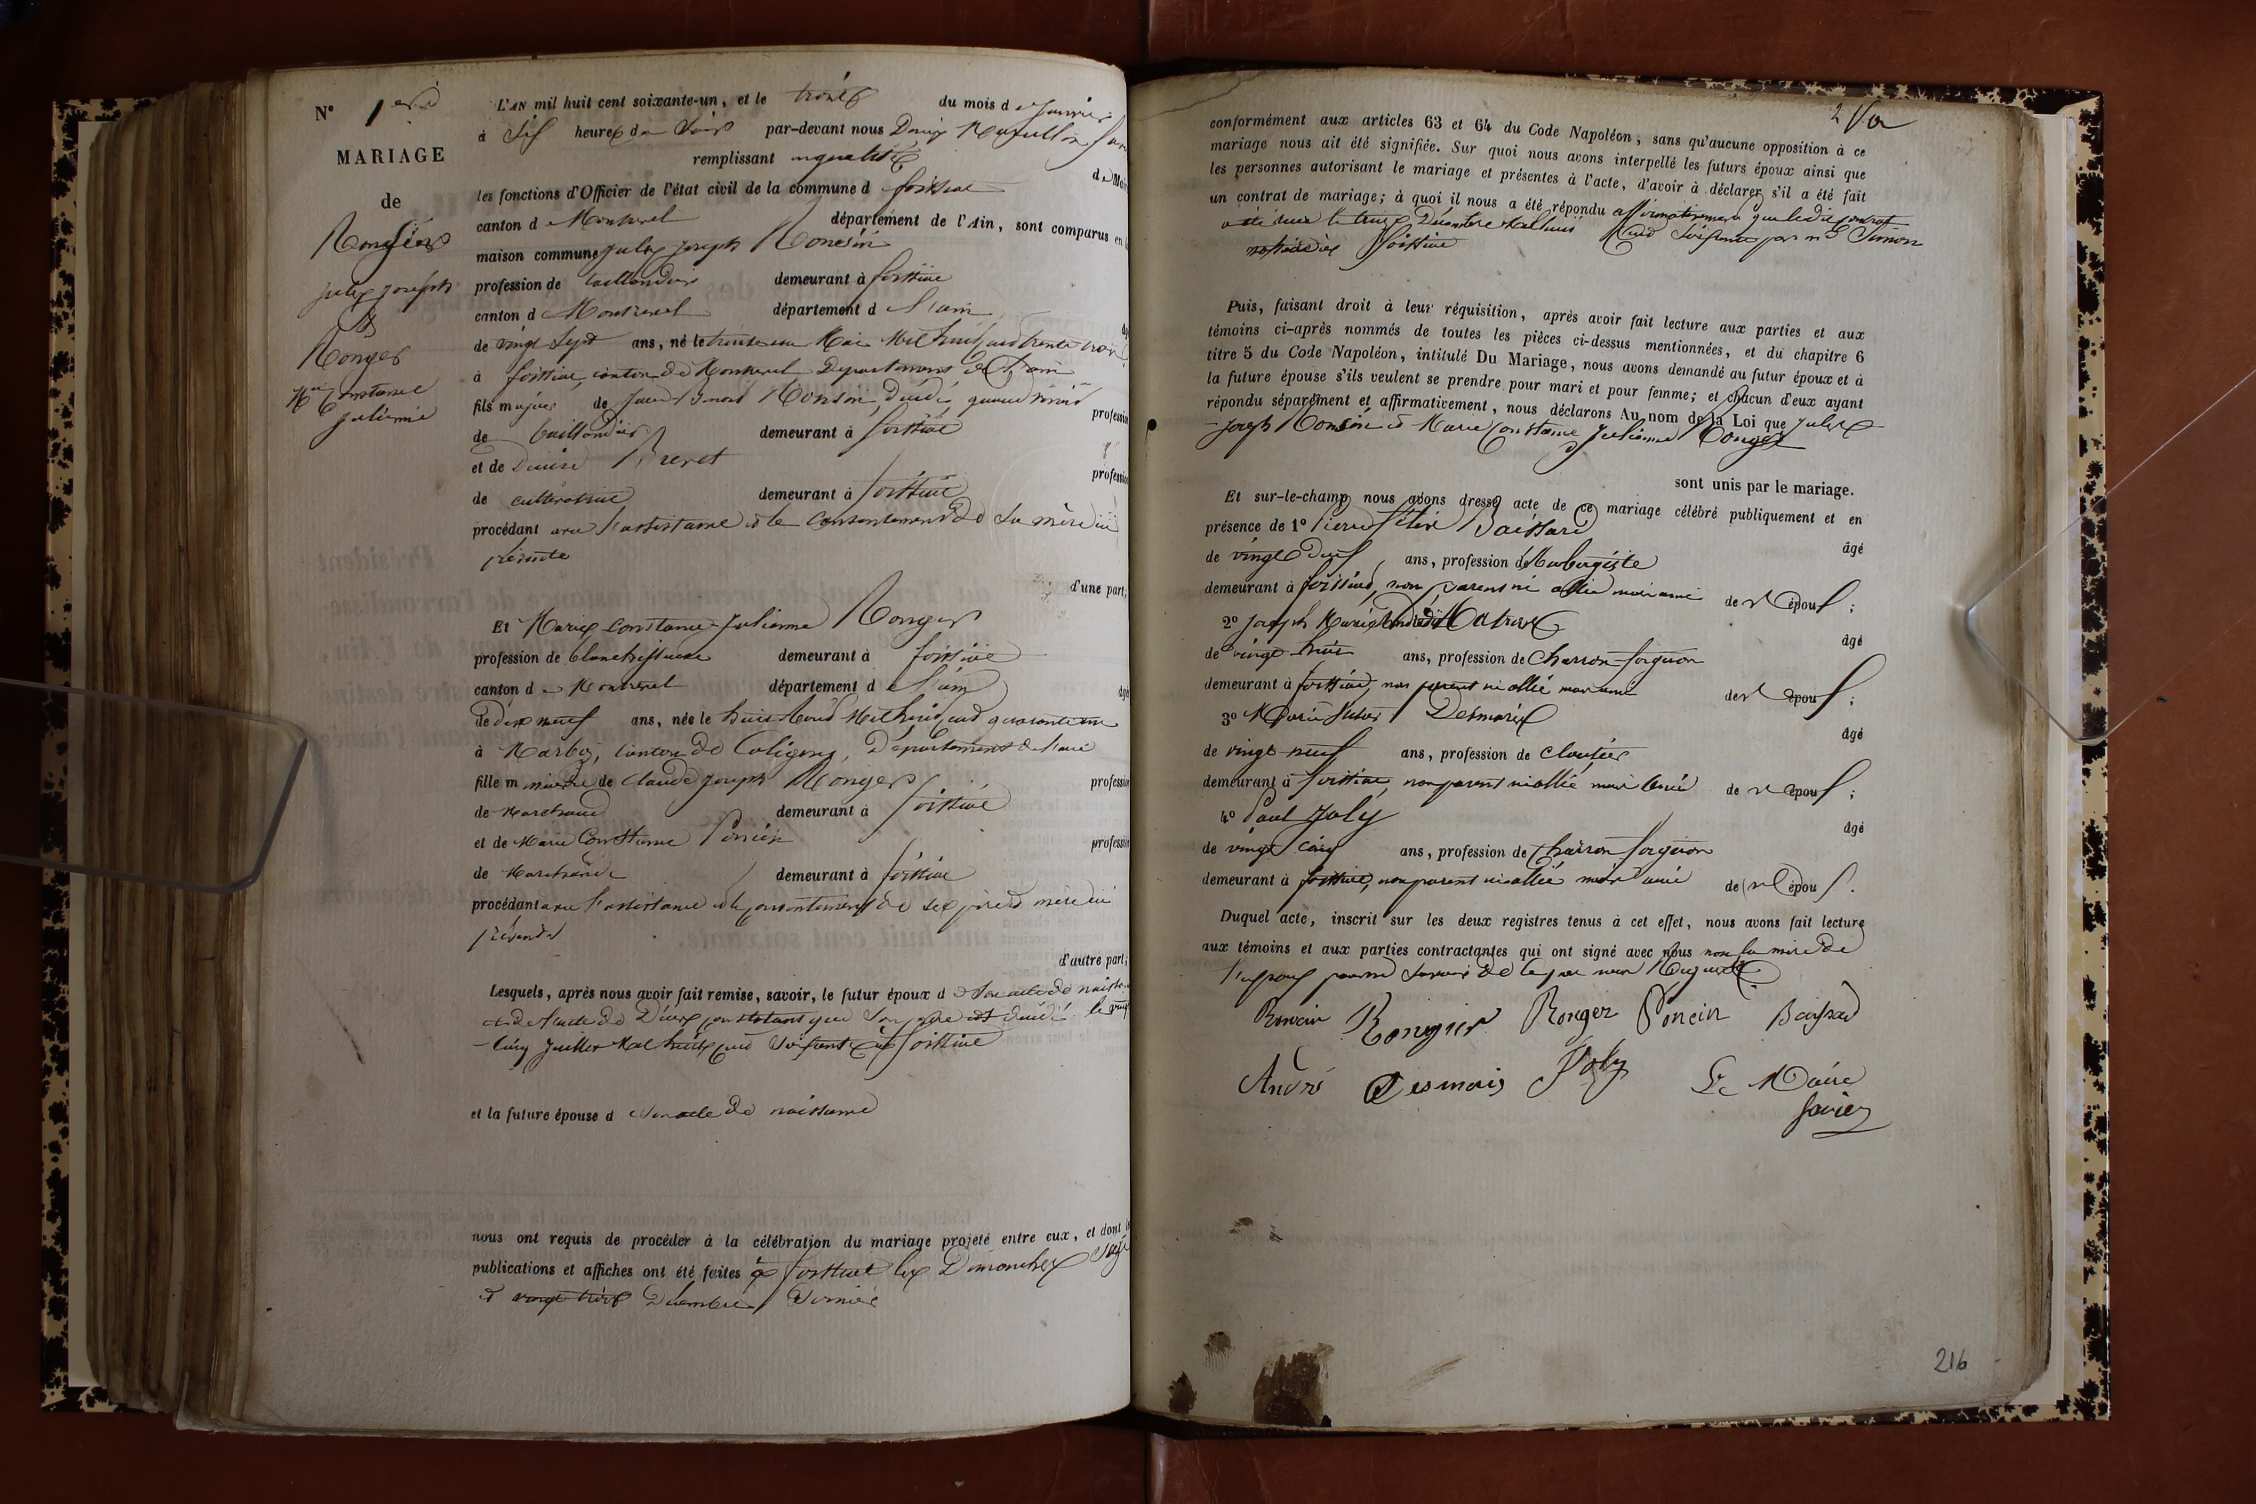 N° 1er
MARIAGE
de
Jules Joseph
et
Ronger
Mie Constance
Julienne
L'AN mil huit cent soixante-un, et le trois du mois de Janvier
à Six heures du Soir par-devant nous Denis
remplissant en qualité de Maire
les fonctions d'Officier de l'état civil de la commune de foissiat
canton de Montrevel département de l'Ain, sont comparus en la
maison commune Jules Joseph
profession de taillandier demeurant à foissiat
canton de Montrevel département de l'ain
de vingt Sept ans, né le trente un Mai Mil huit cent trente trois
à foissiat, canton de Montrevel Département de l'ain
fils majeur de décédé, quand vivait profession
de taillandier demeurant à foissiat
et de Denise profession
de cultivatrice demeurant à foissiat
procédant avec l'assistance et le consentement de Sa mère ici
présente
d'une part;
Et Marie Constance Julienne Ronger
profession de blanchisseuse demeurant à foissiat
canton de Montrevel département de l'ain âgé
de dix neuf ans, née le huit Aout Mil huit cent quarante un
à Marboz, Canton de Coligny, Département de l'ain
fille mineure de Claude Joseph Ronger profession
de Marchand demeurant à foissiat
et de Marie Constance Poncin profession
de Marchande demeurant à foissiat
procédant avec l'assistance et le consentement de ses père et mère ici
présents
d'autre part;
Lesquels, après nous avoir fait remise, savoir, le futur époux de Son acte de naissance
et de l'acte de Décès constatant que Son père est décédé le vingt
cinq Juillet Mil huit cent Soixante à foissiat
et la future épouse de Son acte de naissance
nous ont requis de procéder à la célébration du mariage projeté entre eux, et dont les
publications et affiches ont été faites à foissiat les Dimanches Seize
et vingt trois Décembre Dernier
conformément aux articles 63 et 64 du Code Napoléon, sans qu'aucune opposition à ce
mariage nous ait été signifiée. Sur quoi nous avons interpellé les futurs époux ainsi que
les personnes autorisant le mariage et présentes à l'acte, d'avoir à déclarer s'il a été fait
un contrat de mariage; à quoi il nous a été répondu affirmativement que ledit contrat
a été reçu le treize Décembre Mil huit Cent Soixante par me Simon
notaire à foissiat
Puis, faisant droit à leur réquisition, après avoir fait lecture aux parties et aux
témoins ci-après nommés de toutes les pièces ci-dessus mentionnées, et du chapitre 6
titre 5 du Code Napoléon, intitulé Du Mariage, nous avons demandé au futur époux et à
la future épouse s'ils veulent se prendre pour mari et pour femme; et chacun d'eux ayant
répondu séparément et affirmativement, nous déclarons Au nom de la Loi que Jules
Joseph et Marie Constance Julienne Ronger
sont unis par le mariage.
Et sur-le-champ nous avons dressé acte de ce mariage célébré publiquement et en
présence de 1° Pierre Félix Baissard âgé
de vingt neuf ans, profession d'Aubergiste
demeurant à foissiat, non parent ni allié mais ami de l'époux;
2° Joseph Marie André âgé
de vingt huit ans, profession de Charron-forgeron
demeurant à foissiat, non parent ni allié mais ami de l'époux;
3° Marie Desmaris âgé
de vingt-neuf ans, profession de cloutier
demeurant à foissiat, non parent ni allié mais ami de l'époux;
4° Paul Joly âgé
de vingt cinq ans, profession de Charron forgeron
demeurant à foissiat, non parent ni allié mais ami de l'époux.
Duquel acte, inscrit sur les deux registres tenus à cet effet, nous avons fait lecture
aux parties et aux témoins contractantes qui ont signé avec nous non la mère de
l'époux pour ne Savoir de ce requise
Ronger Poncin Baissard
André Desmaris Joly Le Maire
216